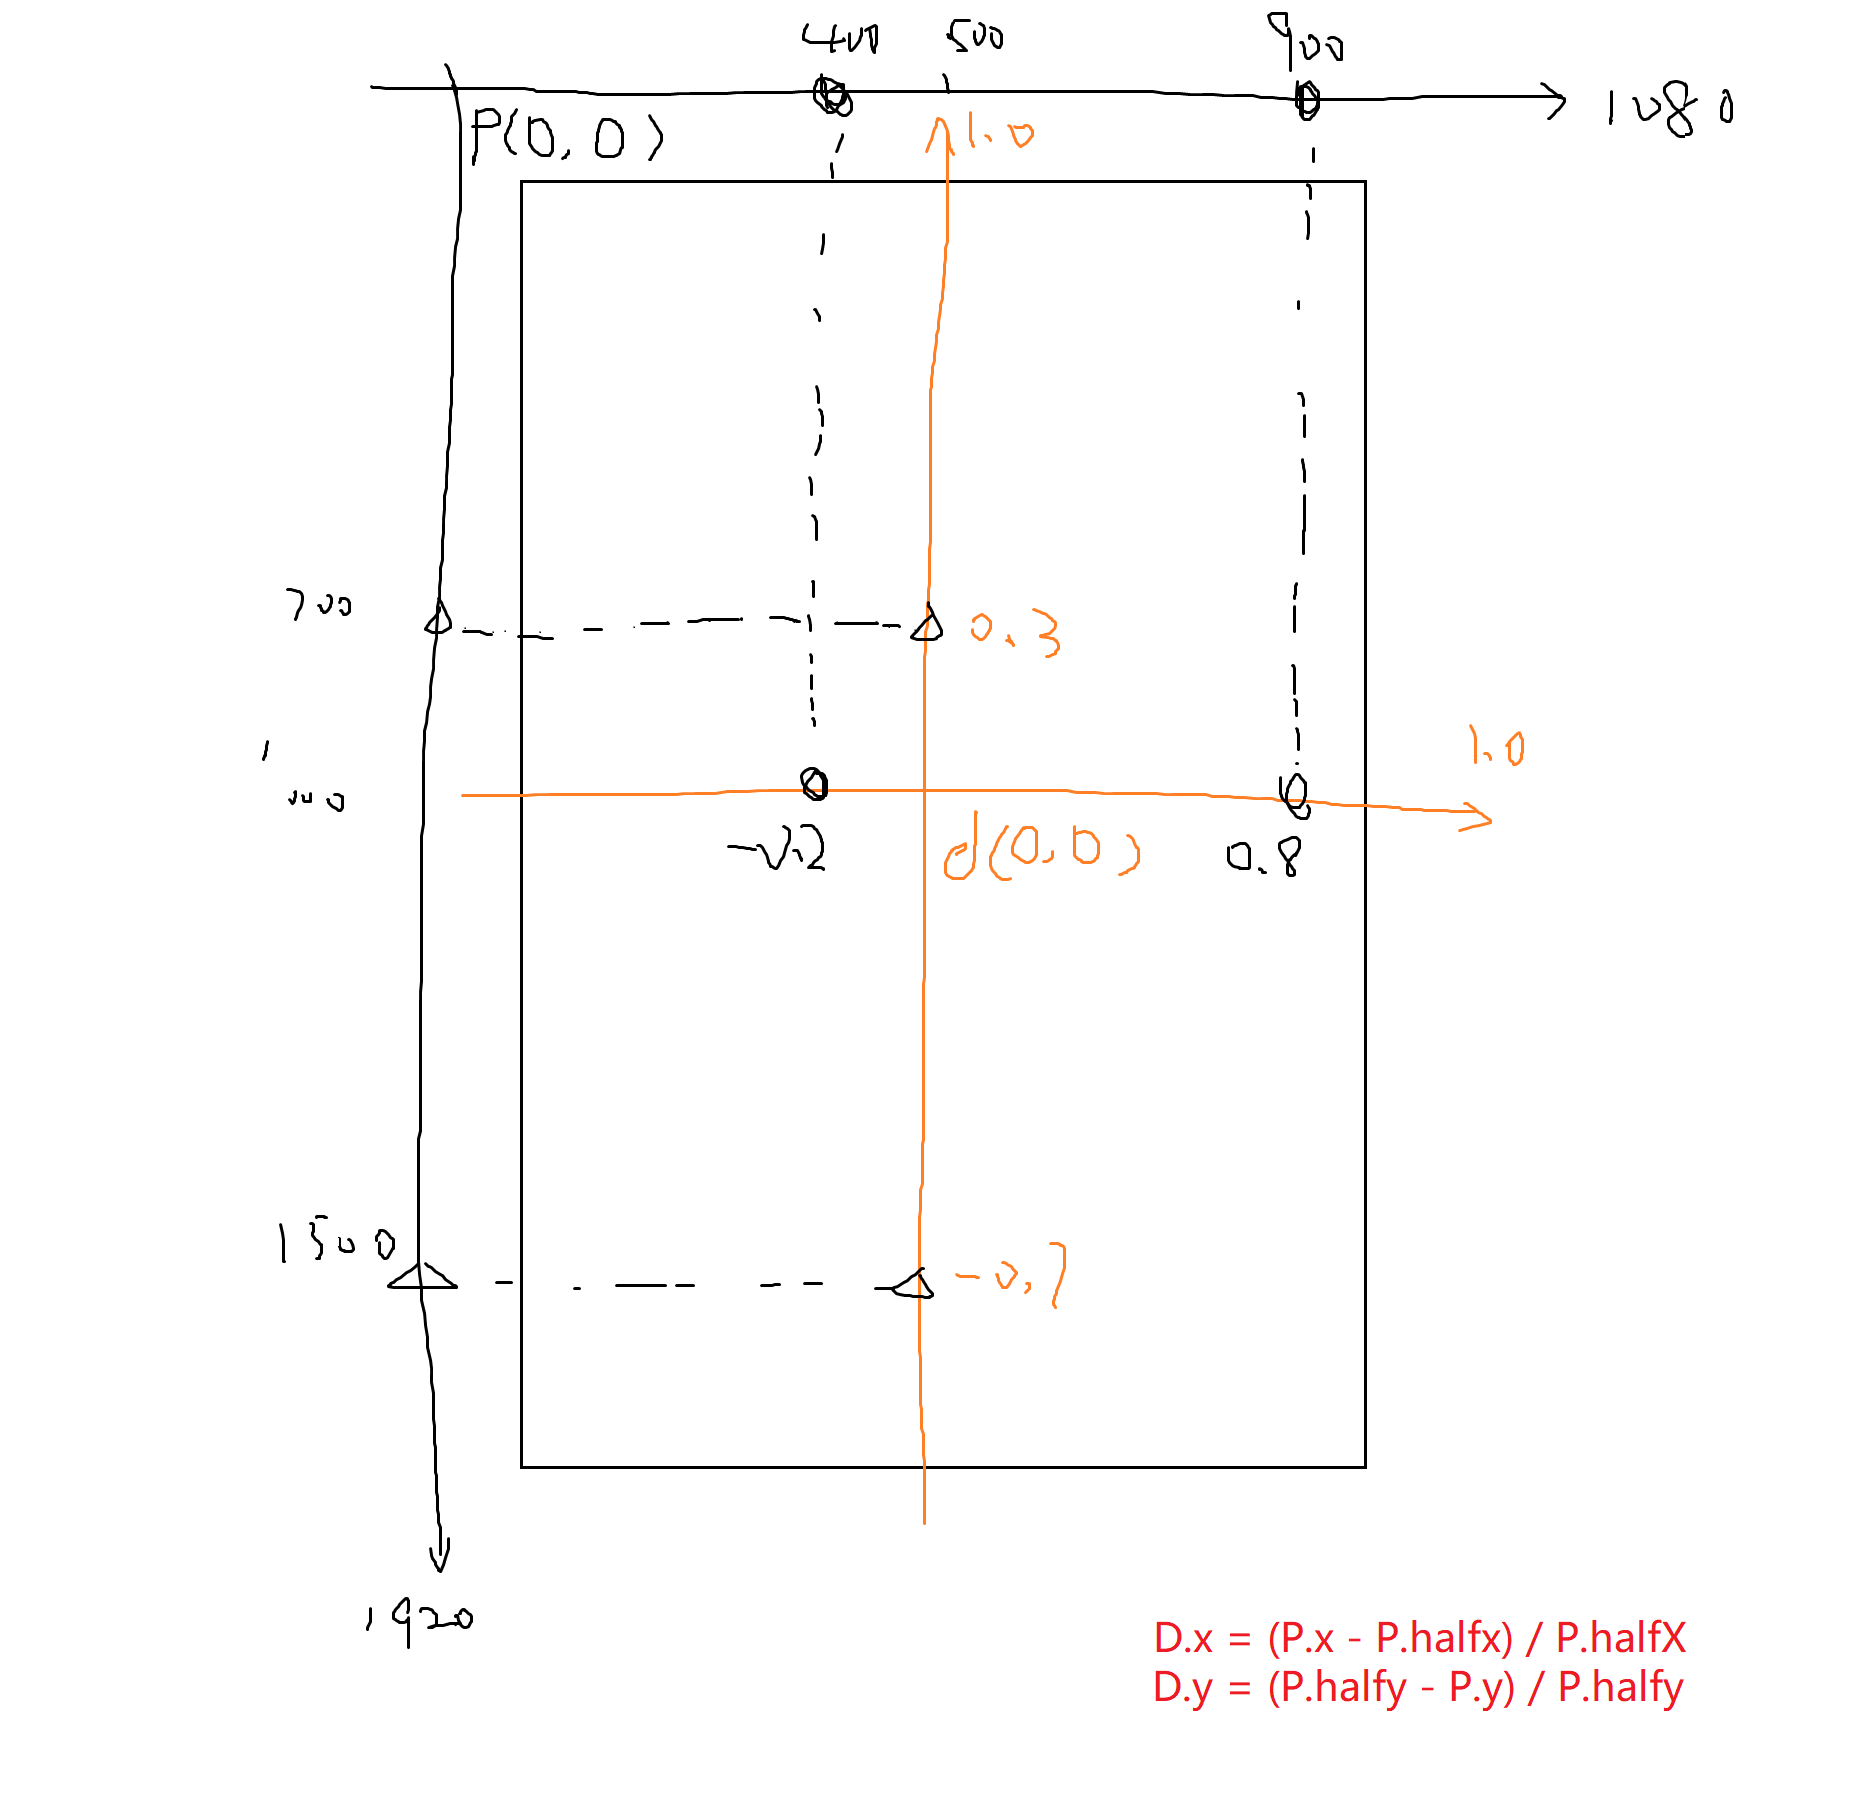 400 500 900
1080
P(0, 0)
1.0
700
0.3
1.0
1000
-0.2
d(0,0)
0.8
1500
-0.7
1920
D.x = (P.x - P.halfx) / P.halfX
D.y = (P.halfy - P.y) / P.halfy